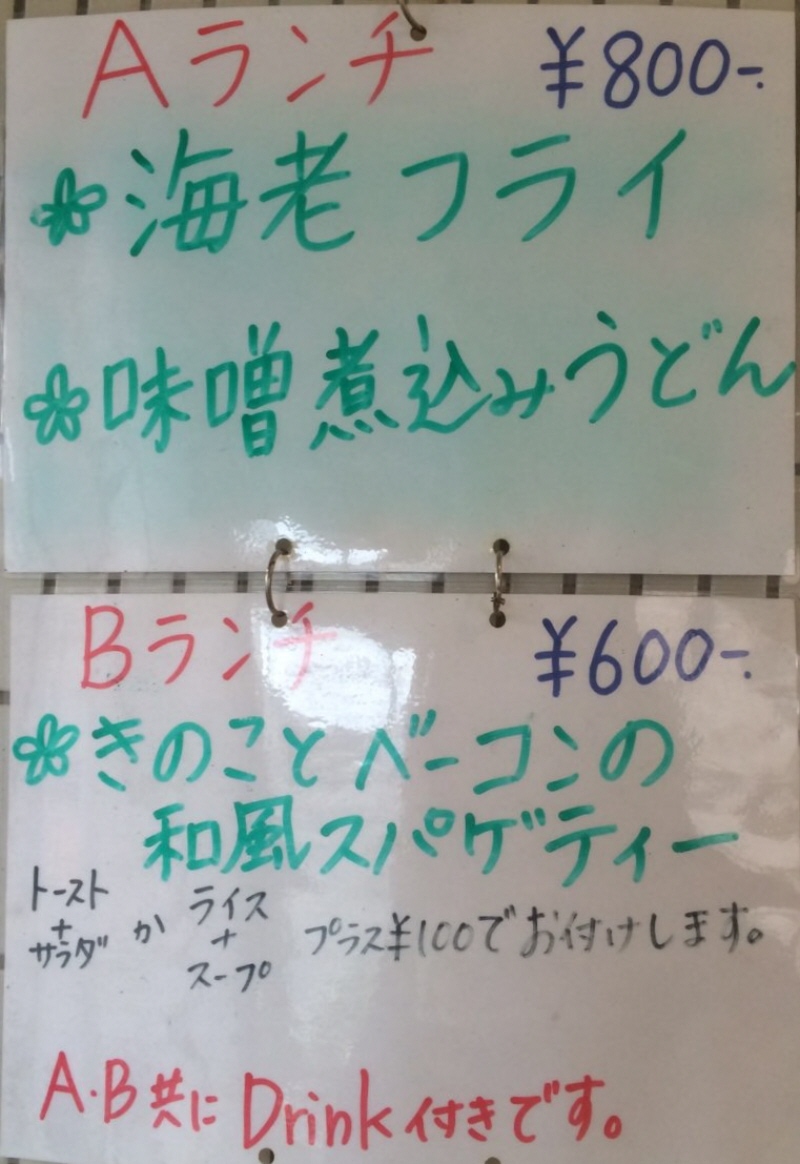 Aランチ ¥800-.
海老フライ
味噌煮込みうどん
Bランチ ¥600-.
きのことベーコンの
和風スパゲティー
トースト+サラダ か ライス+スープ プラス¥100でお付けします。
A.B共にDrink付きです。